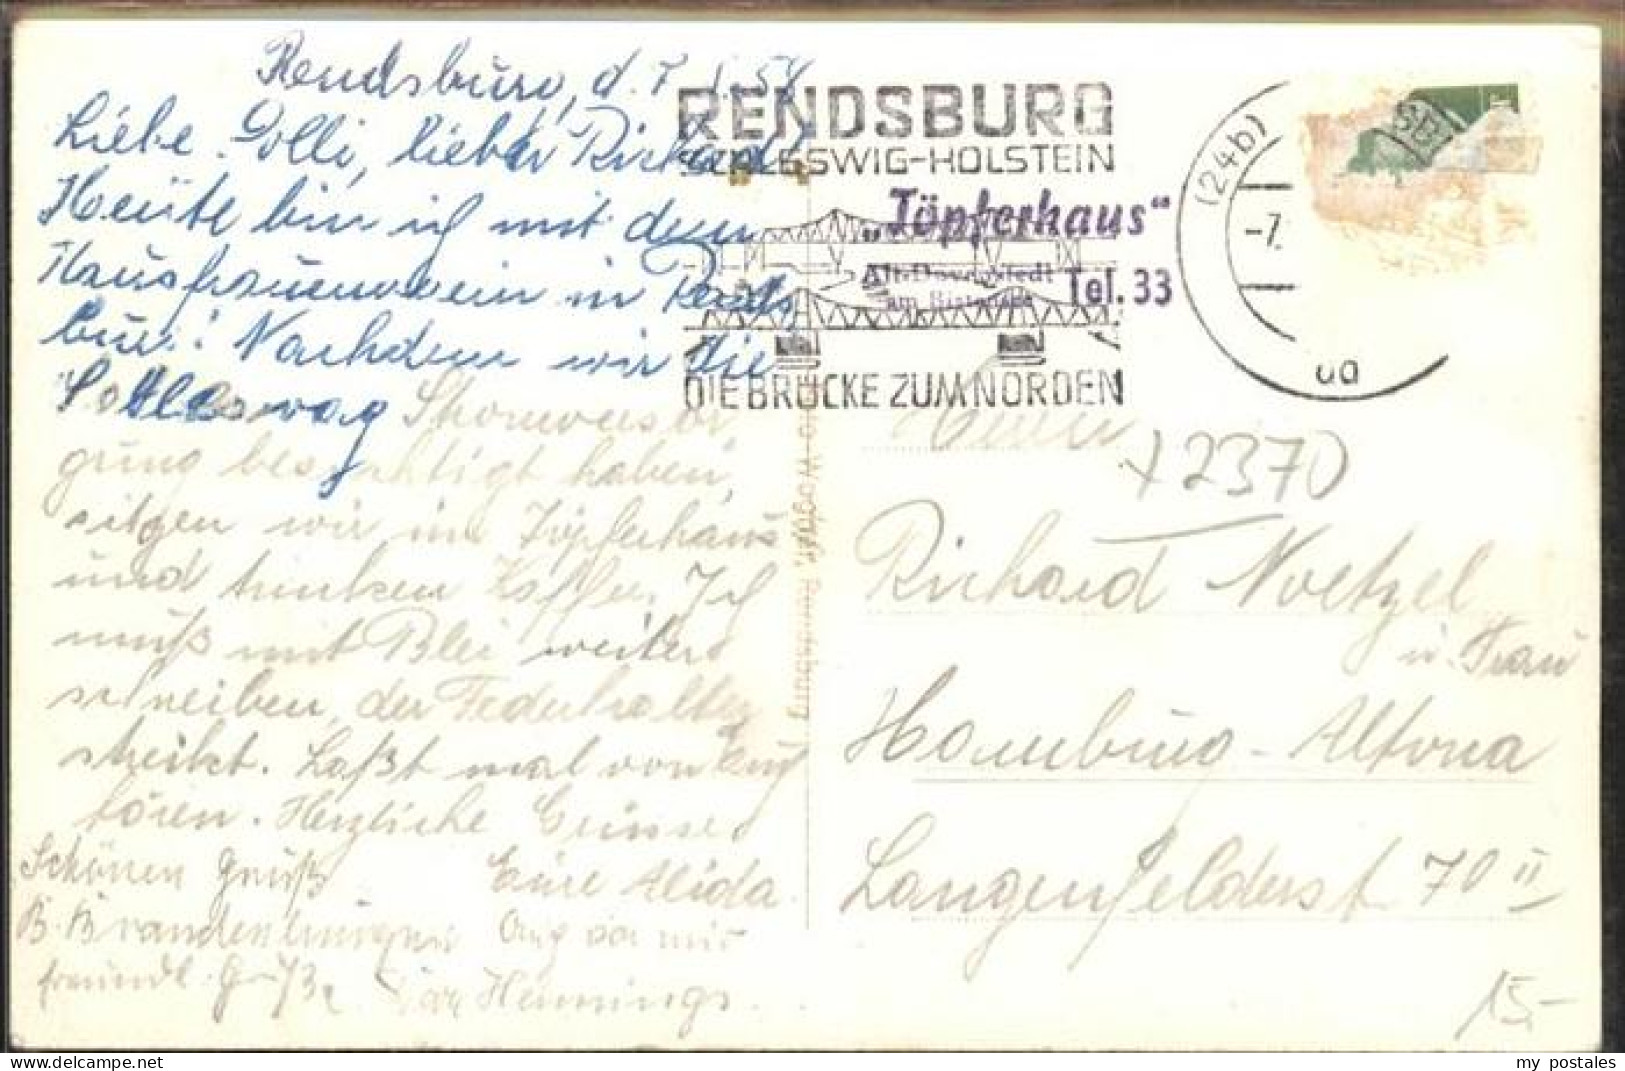 Rendsburg, d. 7. 58
Liebe Dolli, lieber Richard!
Heute bin ich mit dem
Hausfrauenverein in Rends
burg! Nachdem wir die
Schleswag Stromversor
gung besichtigt haben,
sitzen wir im Töpferhaus
und trinken Kaffee. Ich
muß mit Blei weiter
schreiben, der Federhalter
streikt. Laßt mal von Euch
hören. Herzliche Grüsse
Eure Alida.
Schönen Gruß
B. Brandenburger
Auch von mir
freundl. Grüße
Hennings
RENDSBURG
SCHLESWIG-HOLSTEIN
DIE BRÜCKE ZUM NORDEN
„Töpferhaus“
Alt-Duvenstedt
am Bistensee
Tel. 33
(24b)
-7.
Rendsburg
Herrn
x2370
Richard Noetzel
u. Frau
Hamburg-Altona
Langenfelderst. 70 II
15,-
my postales